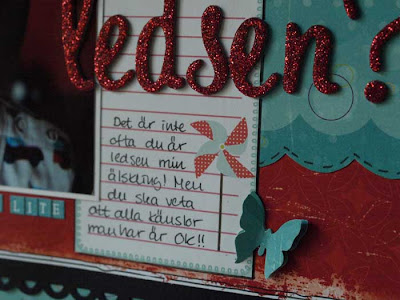 ledsen?
Det är inte
ofta du är
ledsen min
älskling! Men
du ska veta
att alla känslor
man har är OK!!
LITE